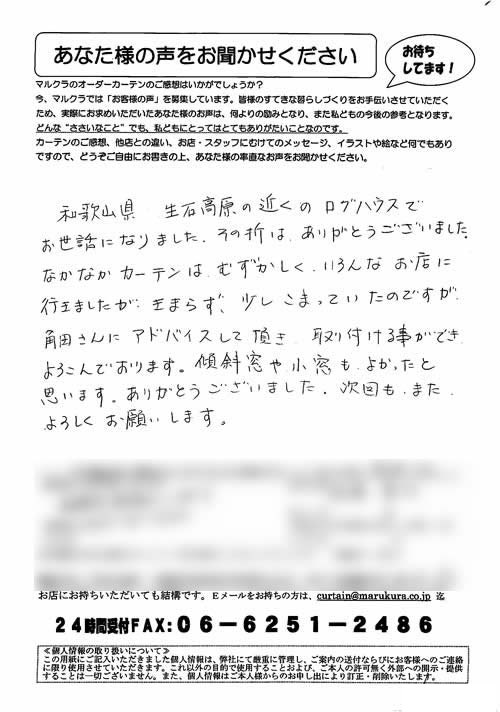 あなた様の声をお聞かせください
お待ち
してます!
マルクラのオーダーカーテンのご感想はいかがでしょうか?
今、マルクラでは「お客様の声」を募集しています。皆様のすてきな暮らしづくりをお手伝いさせていただく
ため、実際にお求めいただいたあなた様のお声は、何よりの励みとなり、また私どもの今後の参考となります。
どんな“ささいなこと”でも、私どもにとってはとてもありがたいことなのです。
カーテンのご感想、他店との違い、お店・スタッフにむけてのメッセージ、イラストや絵など何でもあり
ですので、どうぞご自由にお書きの上、あなた様の率直なお声をお聞かせください。
和歌山県 生石高原の近くのログハウスで
お世話になりました。その折は、ありがとうございました。
なかなかカーテンは、むずかしく、いろんなお店に
行きましたが、きまらず、少しこまっていたのですが、
角田さんにアドバイスして頂き、取り付ける事ができ
よろこんでおります。傾斜窓や小窓も、よかったと
思います。ありがとうございました。次回も、また、
よろしくお願いします。
お店にお持ちいただいても結構です。Eメールをお持ちの方は、curtain@marukura.co.jp 迄
24時間受付FAX:06-6251-2486
≪個人情報の取り扱いについて≫
この用紙にご記入いただきました個人情報は、弊社にて厳重に管理し、ご案内の送付ならびにお客様へのご連絡
に限り使用させていただきます。これ以外の目的で使用することおよび、ご本人の許可無く外部への開示・提供
することは一切ございません。また、個人情報はご本人様からのお申し出により訂正・削除いたします。